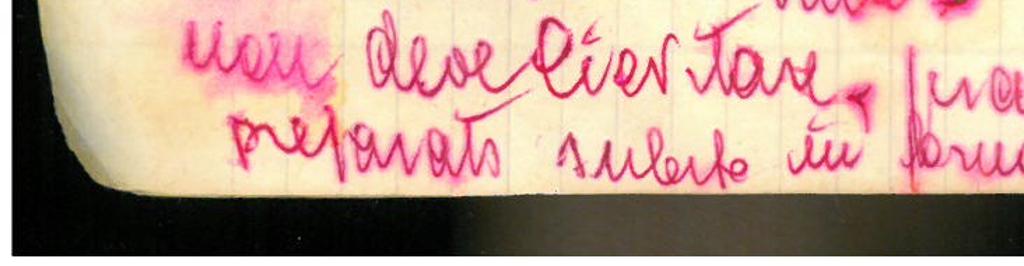 non deve lievitare,
preparato subito in